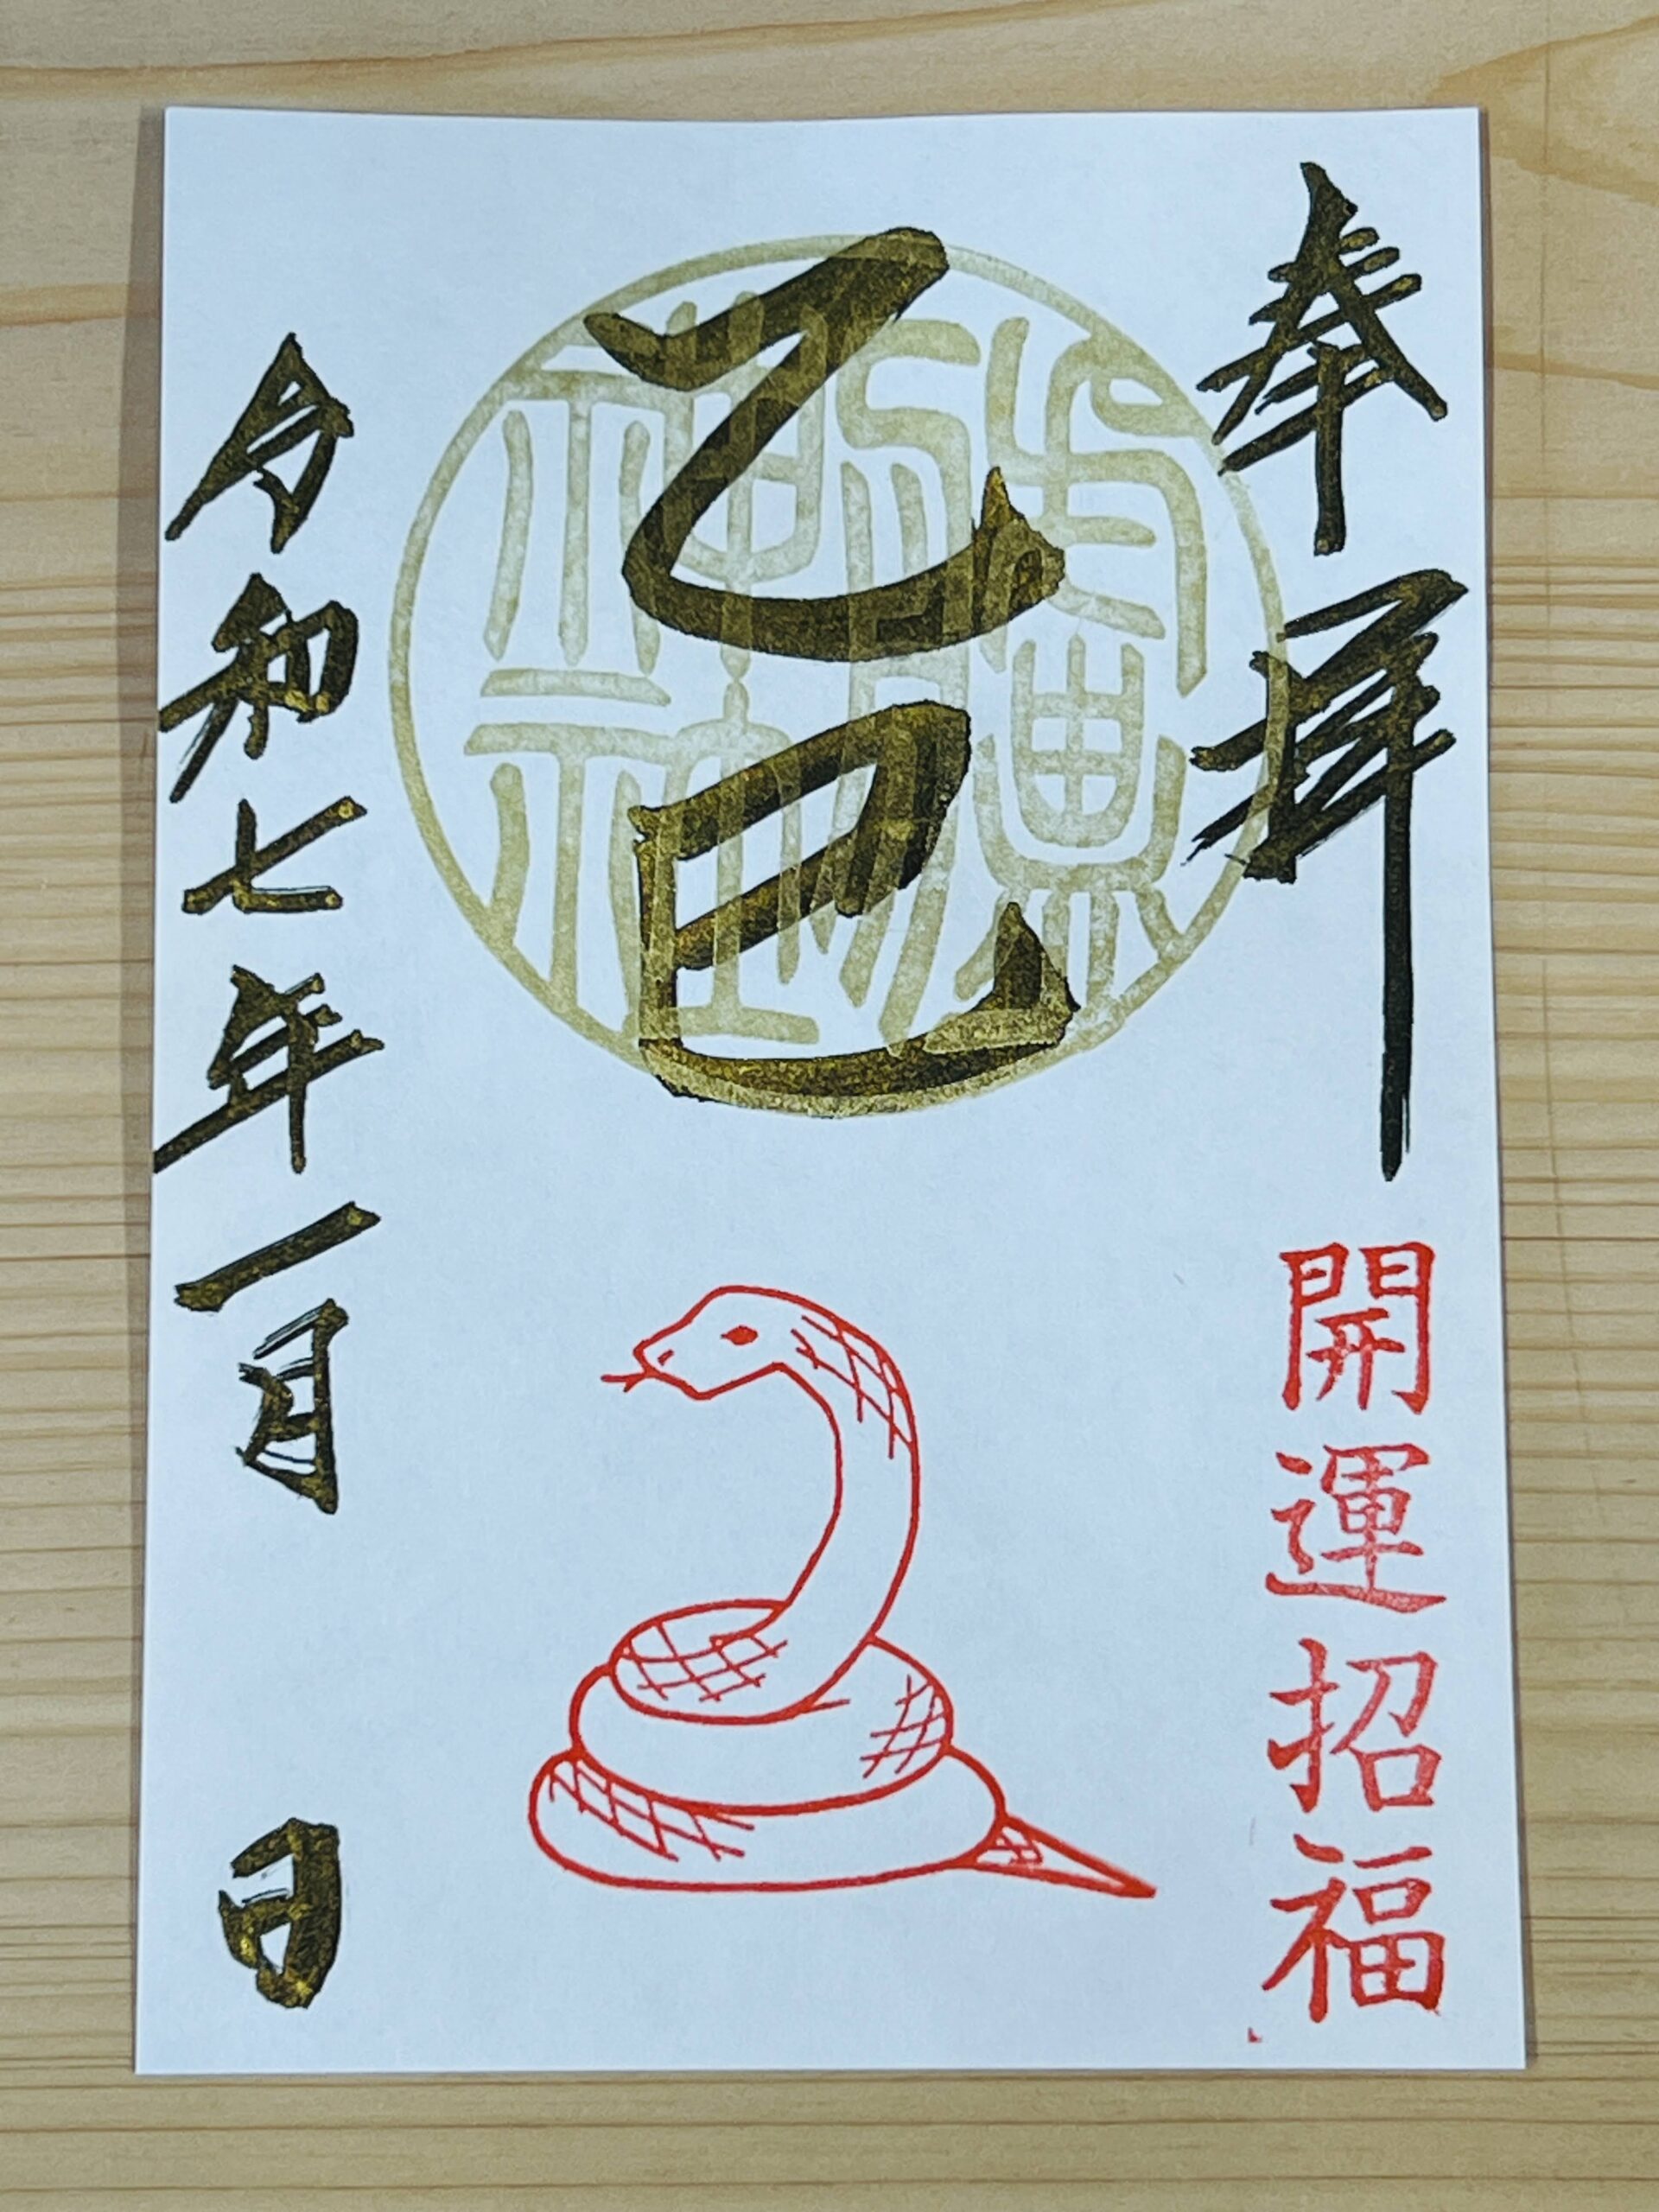 奉拝
開運招福
乙巳
令和七年一月 日